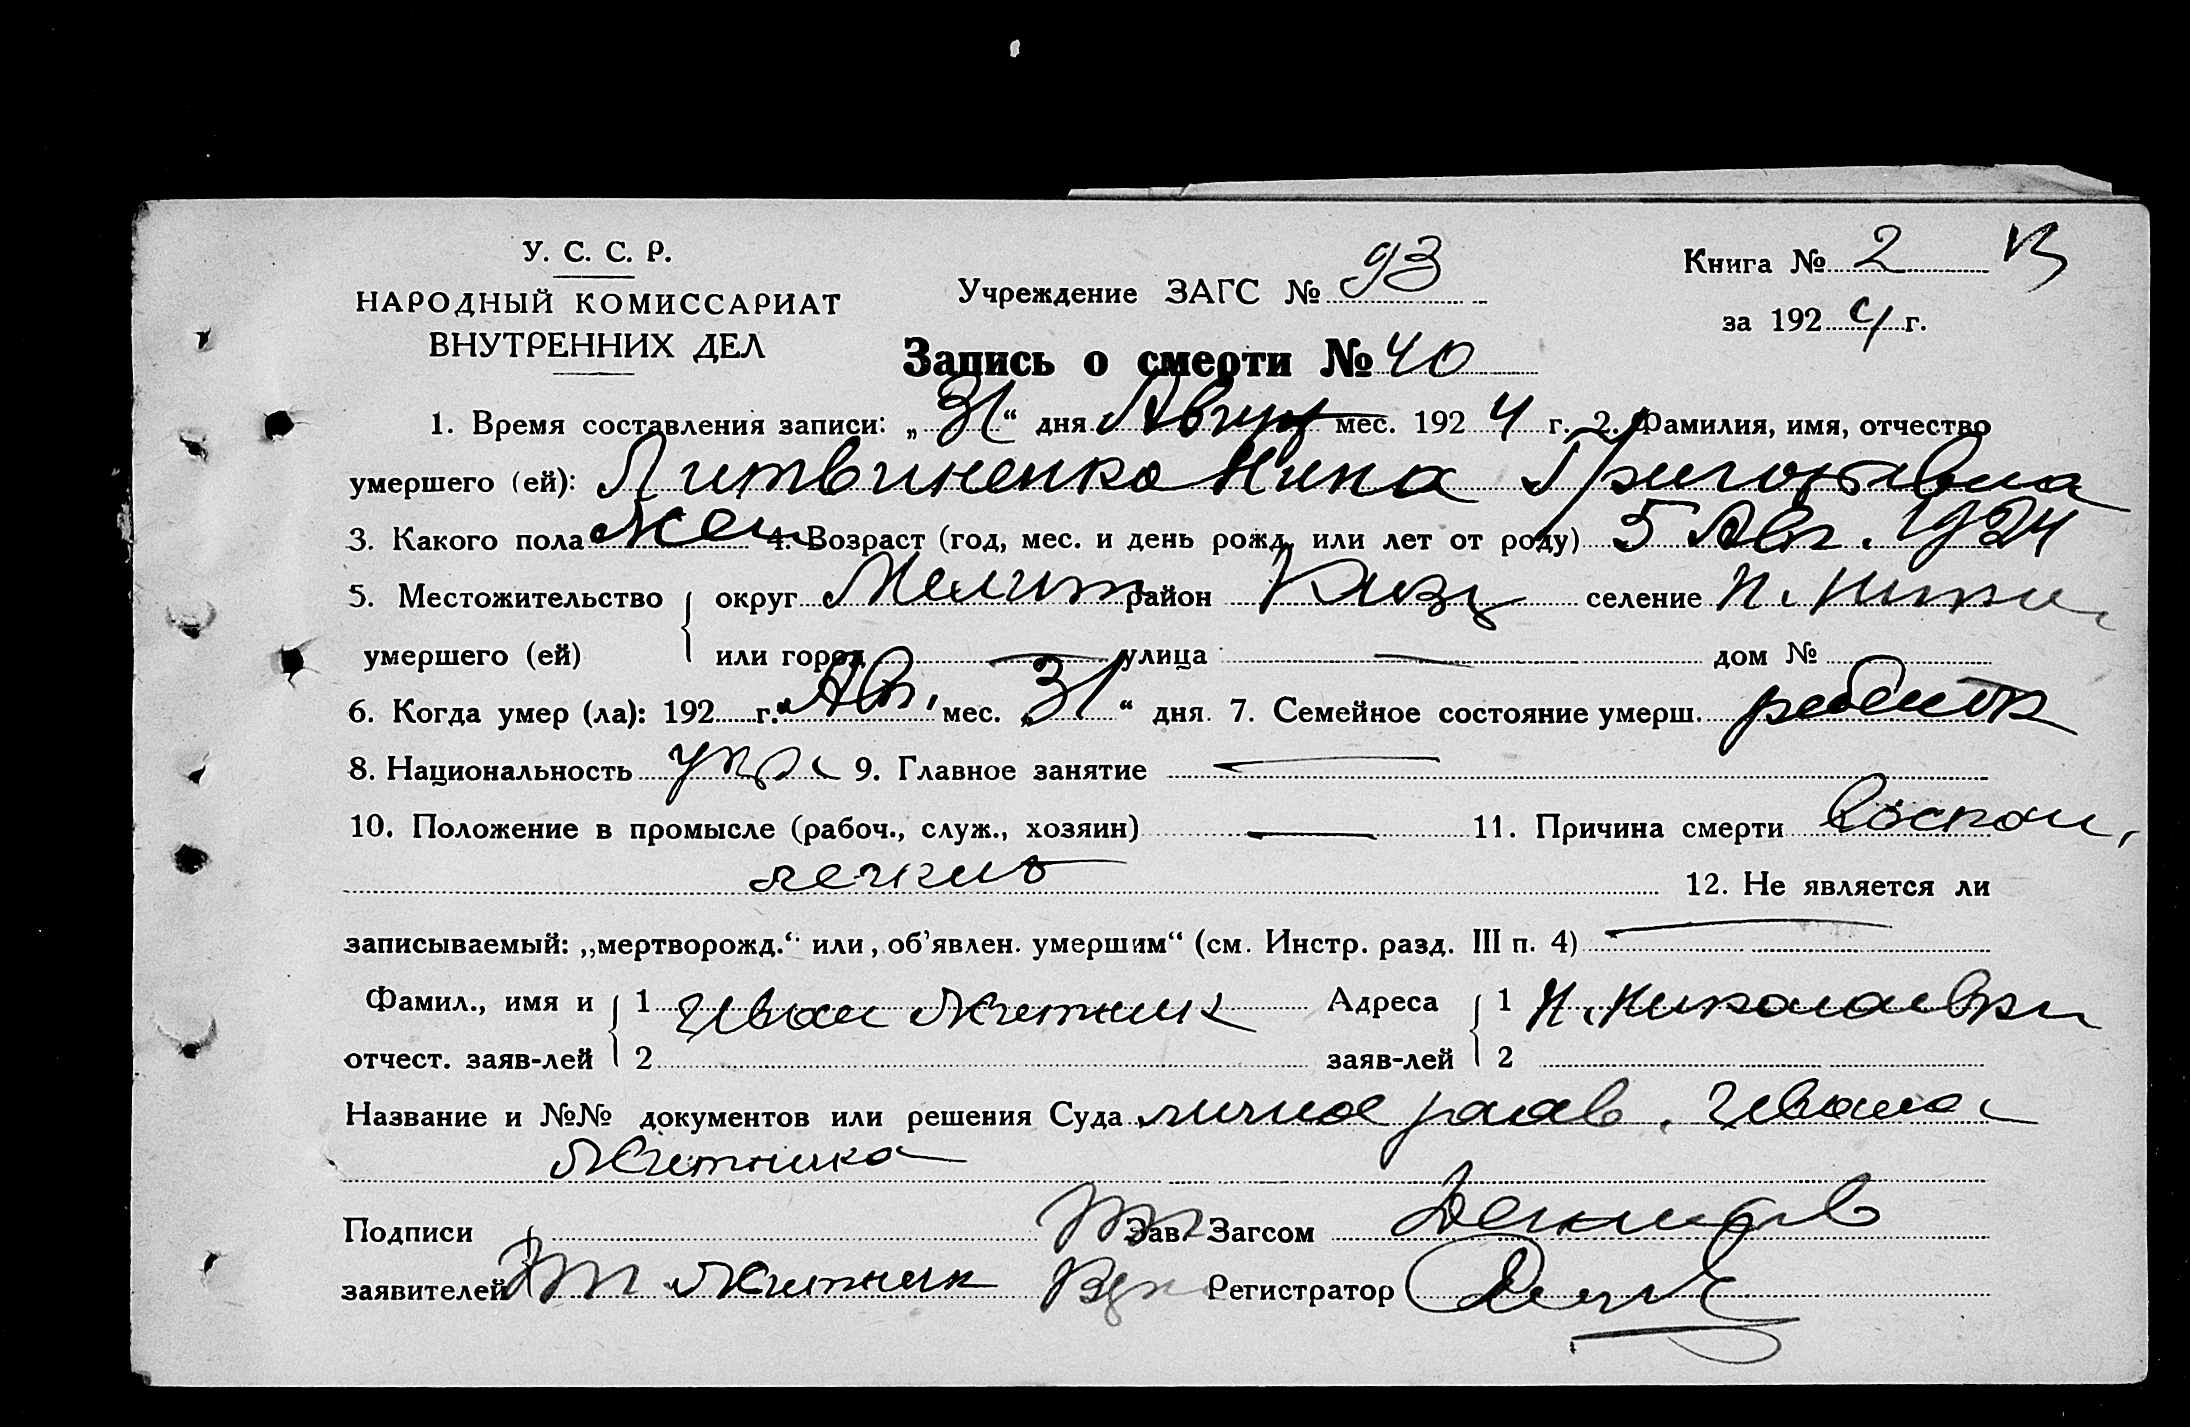 У. С. С. Р.
НАРОДНЫЙ КОМИССАРИАТ
ВНУТРЕННИХ ДЕЛ
Учреждение ЗАГС № 93
Книга № 2
за 1924 г.
Запись о смерти № 40
1. Время составления записи: „31“ дня Август мес. 1924 г. 2. Фамилия, имя, отчество
умершего (ей): Литвиненко Нина Григорьевна
3. Какого пола жен 4. Возраст (год, мес. и день рожд. или лет от роду) 5 Авг. 1924
5. Местожительство округ Мелит район селение Н. Никол
умершего (ей) или город — улица — дом №
6. Когда умер (ла): 192 г. Авг. мес. „31“ дня. 7. Семейное состояние умерш. ребенок
8. Национальность укр. 9. Главное занятие —
10. Положение в промысле (рабоч., служ., хозяин) — 11. Причина смерти воспал.
легких
12. Не является ли
записываемый: „мертворожд.“ или „об'явлен. умершим“ (см. Инстр. разд. III п. 4) —
Фамил., имя и 1 Иван Житник Адреса 1 Н. Николаевка
отчест. заяв-лей 2 заяв-лей 2
Название и №№ документов или решения Суда личное заяв. Ивана
Житника
Подписи Зав. Загсом
заявителей Житник Регистратор